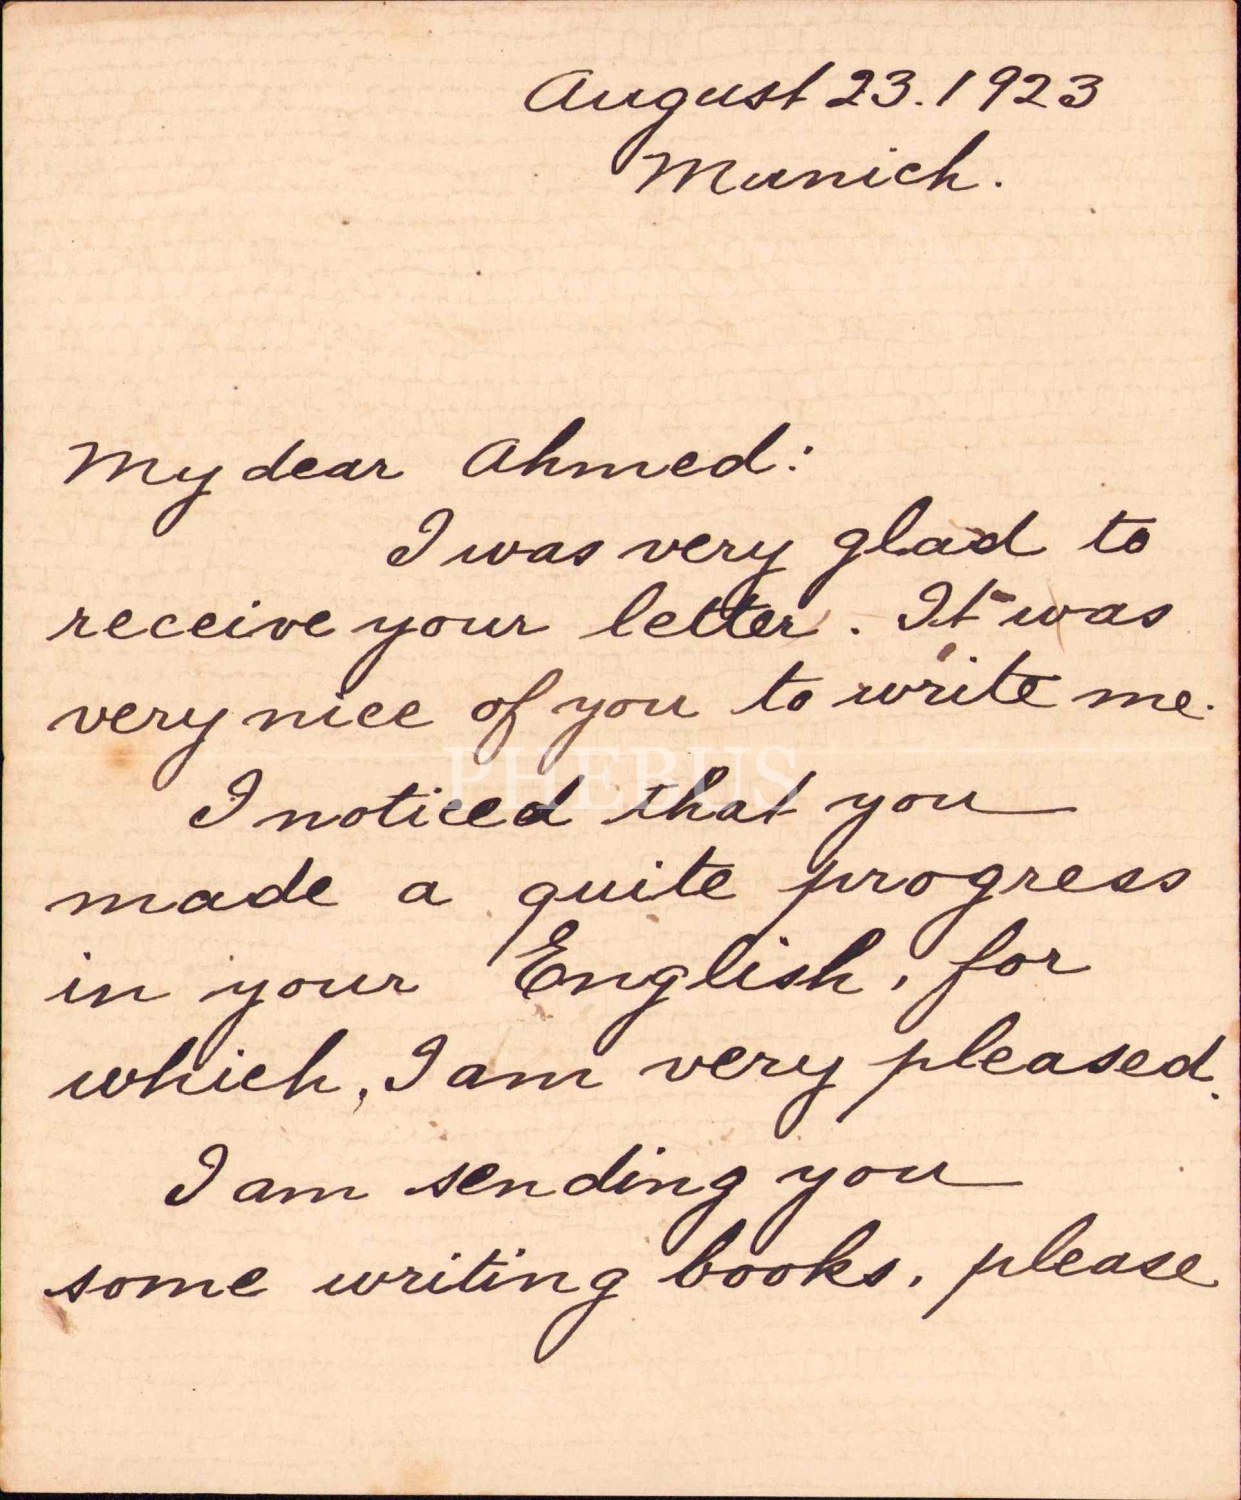 August 23. 1923
Munich.
My dear Ahmed:
I was very glad to
receive your letter. It was
very nice of you to write me.
PHEBUS
I noticed that you
made a quite progress
in your English, for
which, I am very pleased.
I am sending you
some writing books, please